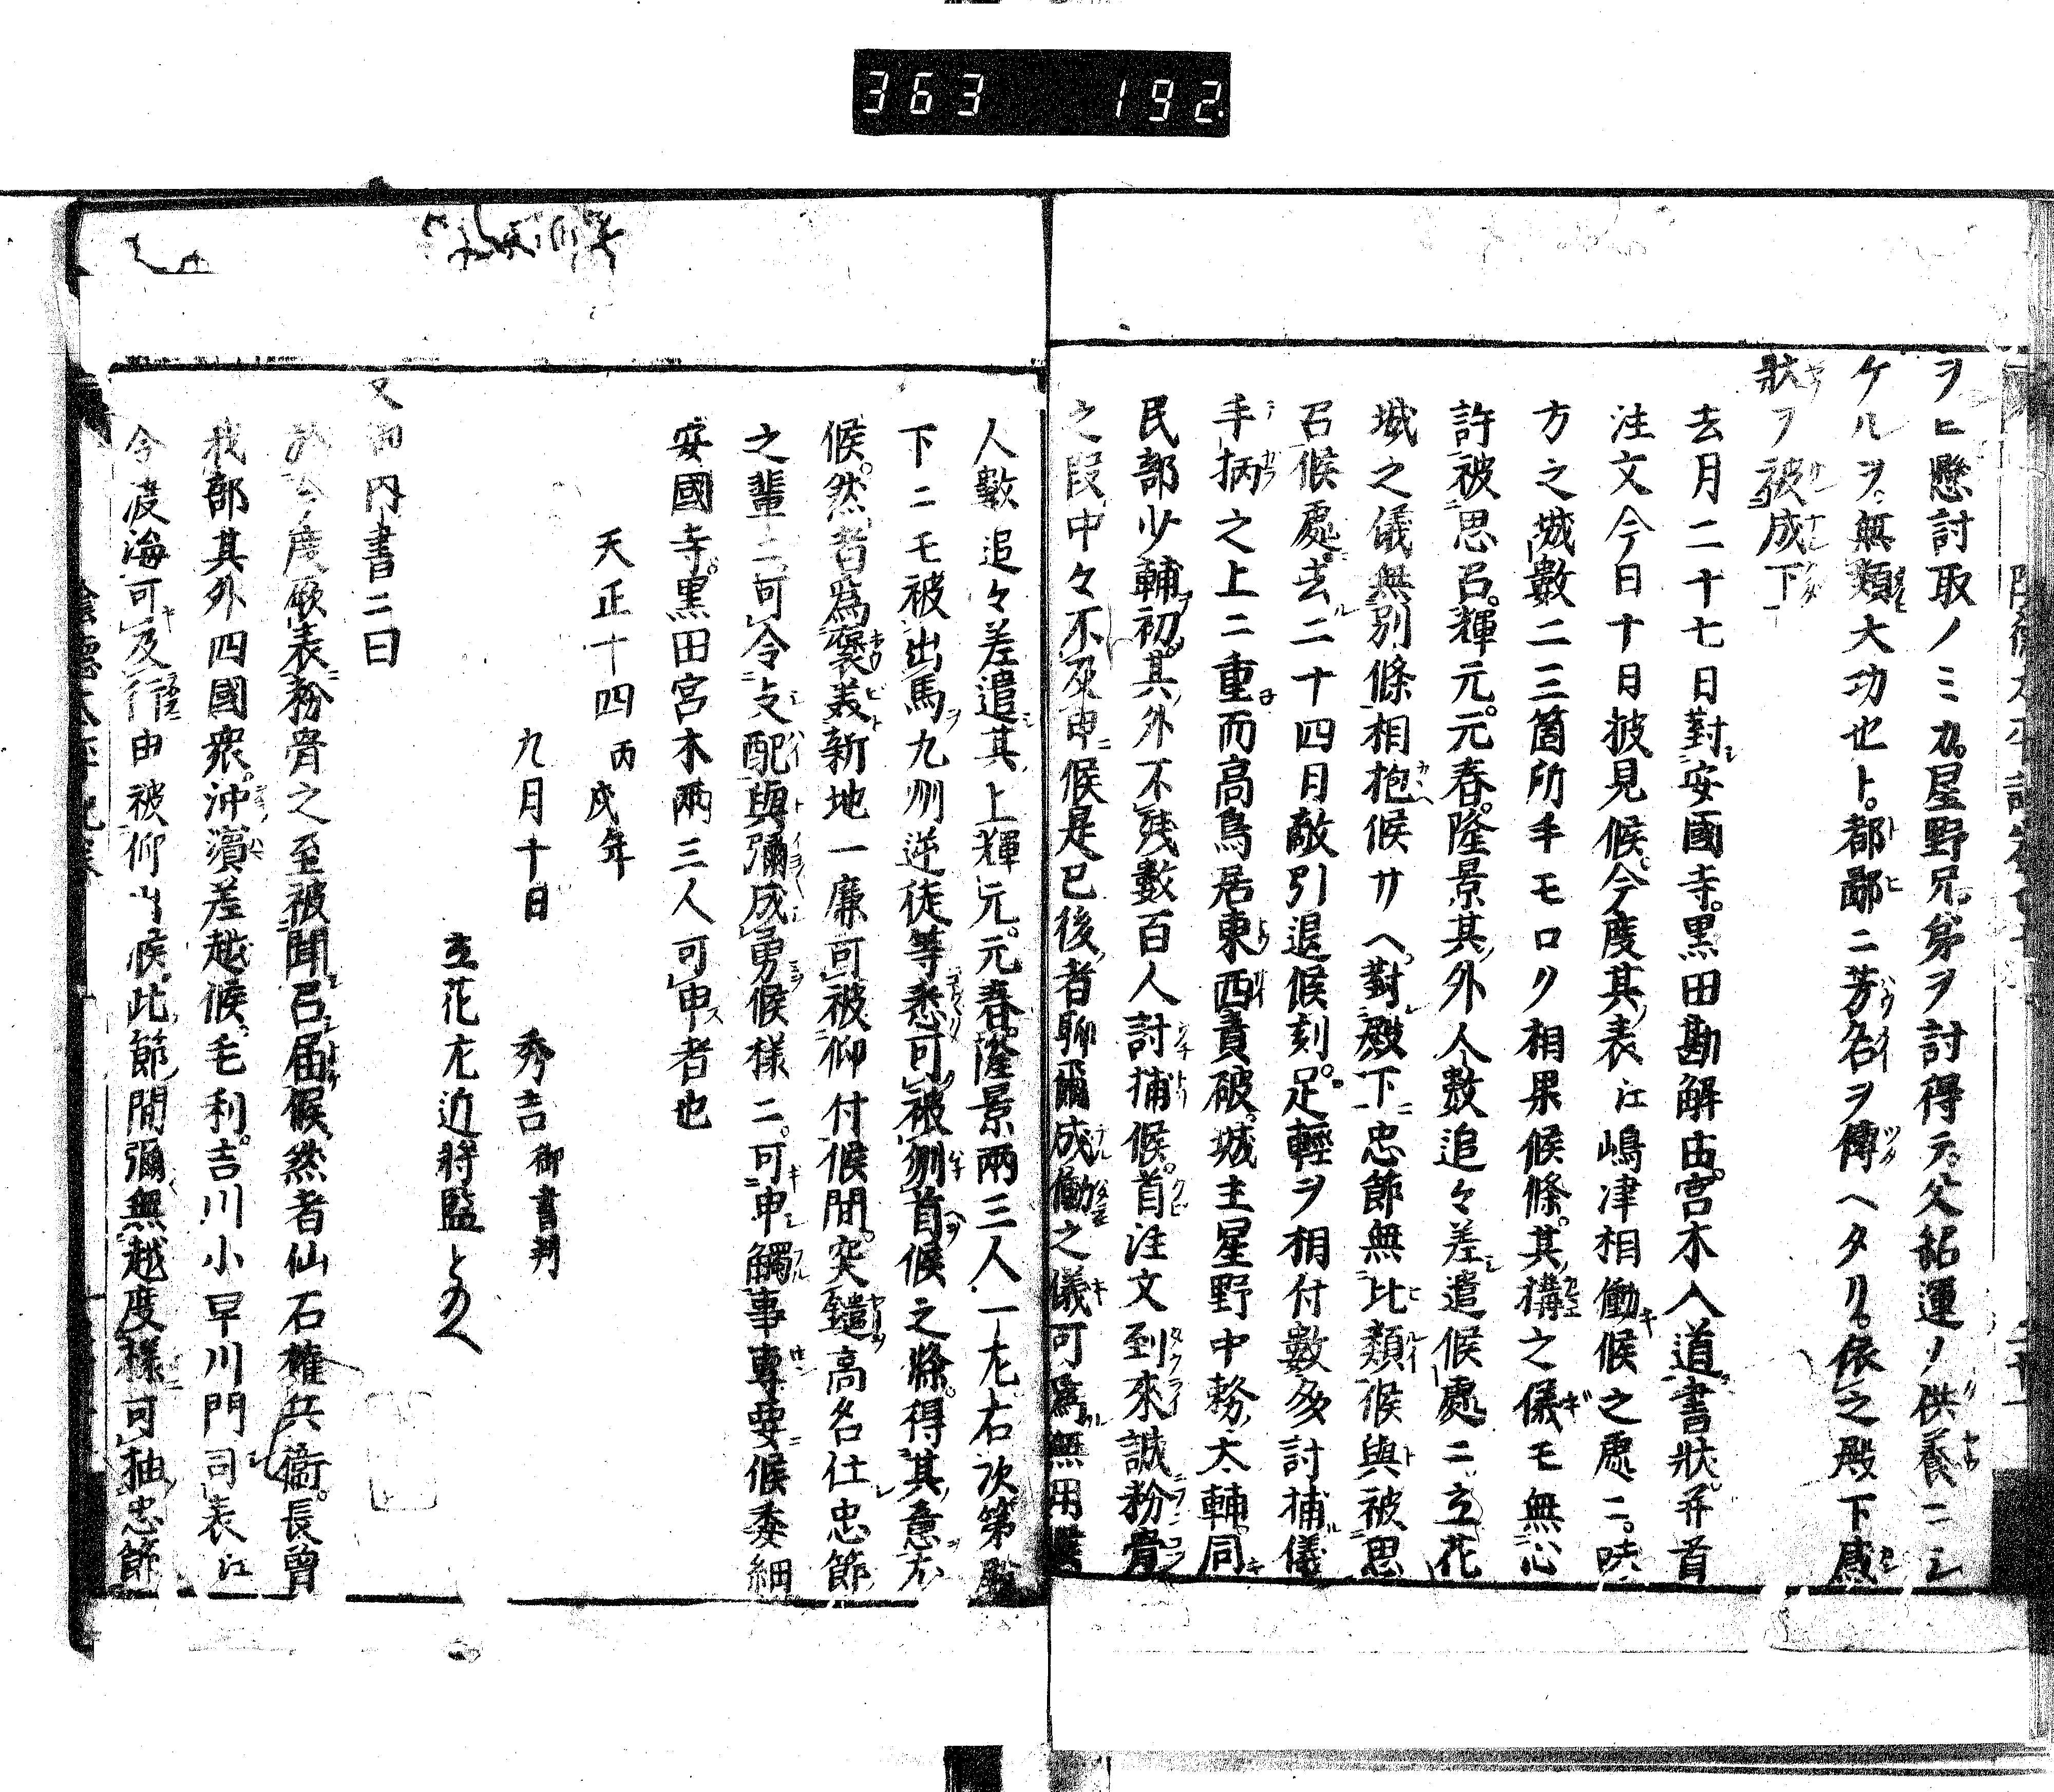 363 192
ヲヒ懸討取ノミカ。星野兄弟ヲ討得テ、父紹運ノ供養ニシ
ケルヲ、無類大功也ト。都鄙ニ芳名ヲ傳ヘタリ。依之殿下感
狀ヲ被成下
去月二十七日對安國寺。黒田勘解由。宮木入道書狀。并首
注文今日十日披見候。今度其表江嶋津相働候之處ニ。味
方之城數二三箇所手モロク相果候條。其構之儀モ無心
許被思召。輝元。元春。隆景其外人數追々差遣候處ニ立花
城之儀無別條相抱候サヘ。對殿下忠節無比類候與被思
召候處。去二十四日敵引退候刻。足輕ヲ相付數多討捕儀
手柄之上ニ重而高鳥居東西責破。城主星野中務太輔同
民部少輔初。其外不残數百人討捕候。首注文到來誠粉骨
之段中々不及申候是已後者聊爾成働之儀可爲無用候
人數追々差遣其上輝元。元春。隆景兩三人一左右次第殿
下ニモ被出馬九州逆徒等悉可被刎首候之條。得其意尤
候。然者爲褒美新地一廉可被仰付候間。突鑓高名仕忠節
之輩ニ可令支配與彌成勇候様ニ。可申觸事專要候委細
安國寺。黒田宮木兩三人可申者也
天正十四 丙戌年
九月十日 秀吉 御書判
立花左近將監とのへ
又御内書ニ曰
於今度厥表粉骨之至被聞召届候。然者仙石權兵衞。長曾
我部其外四國衆。沖濱差越候。毛利。吉川小早川門司表江
令渡海可及行由被仰出候。此節間彌無越度様可抽忠節